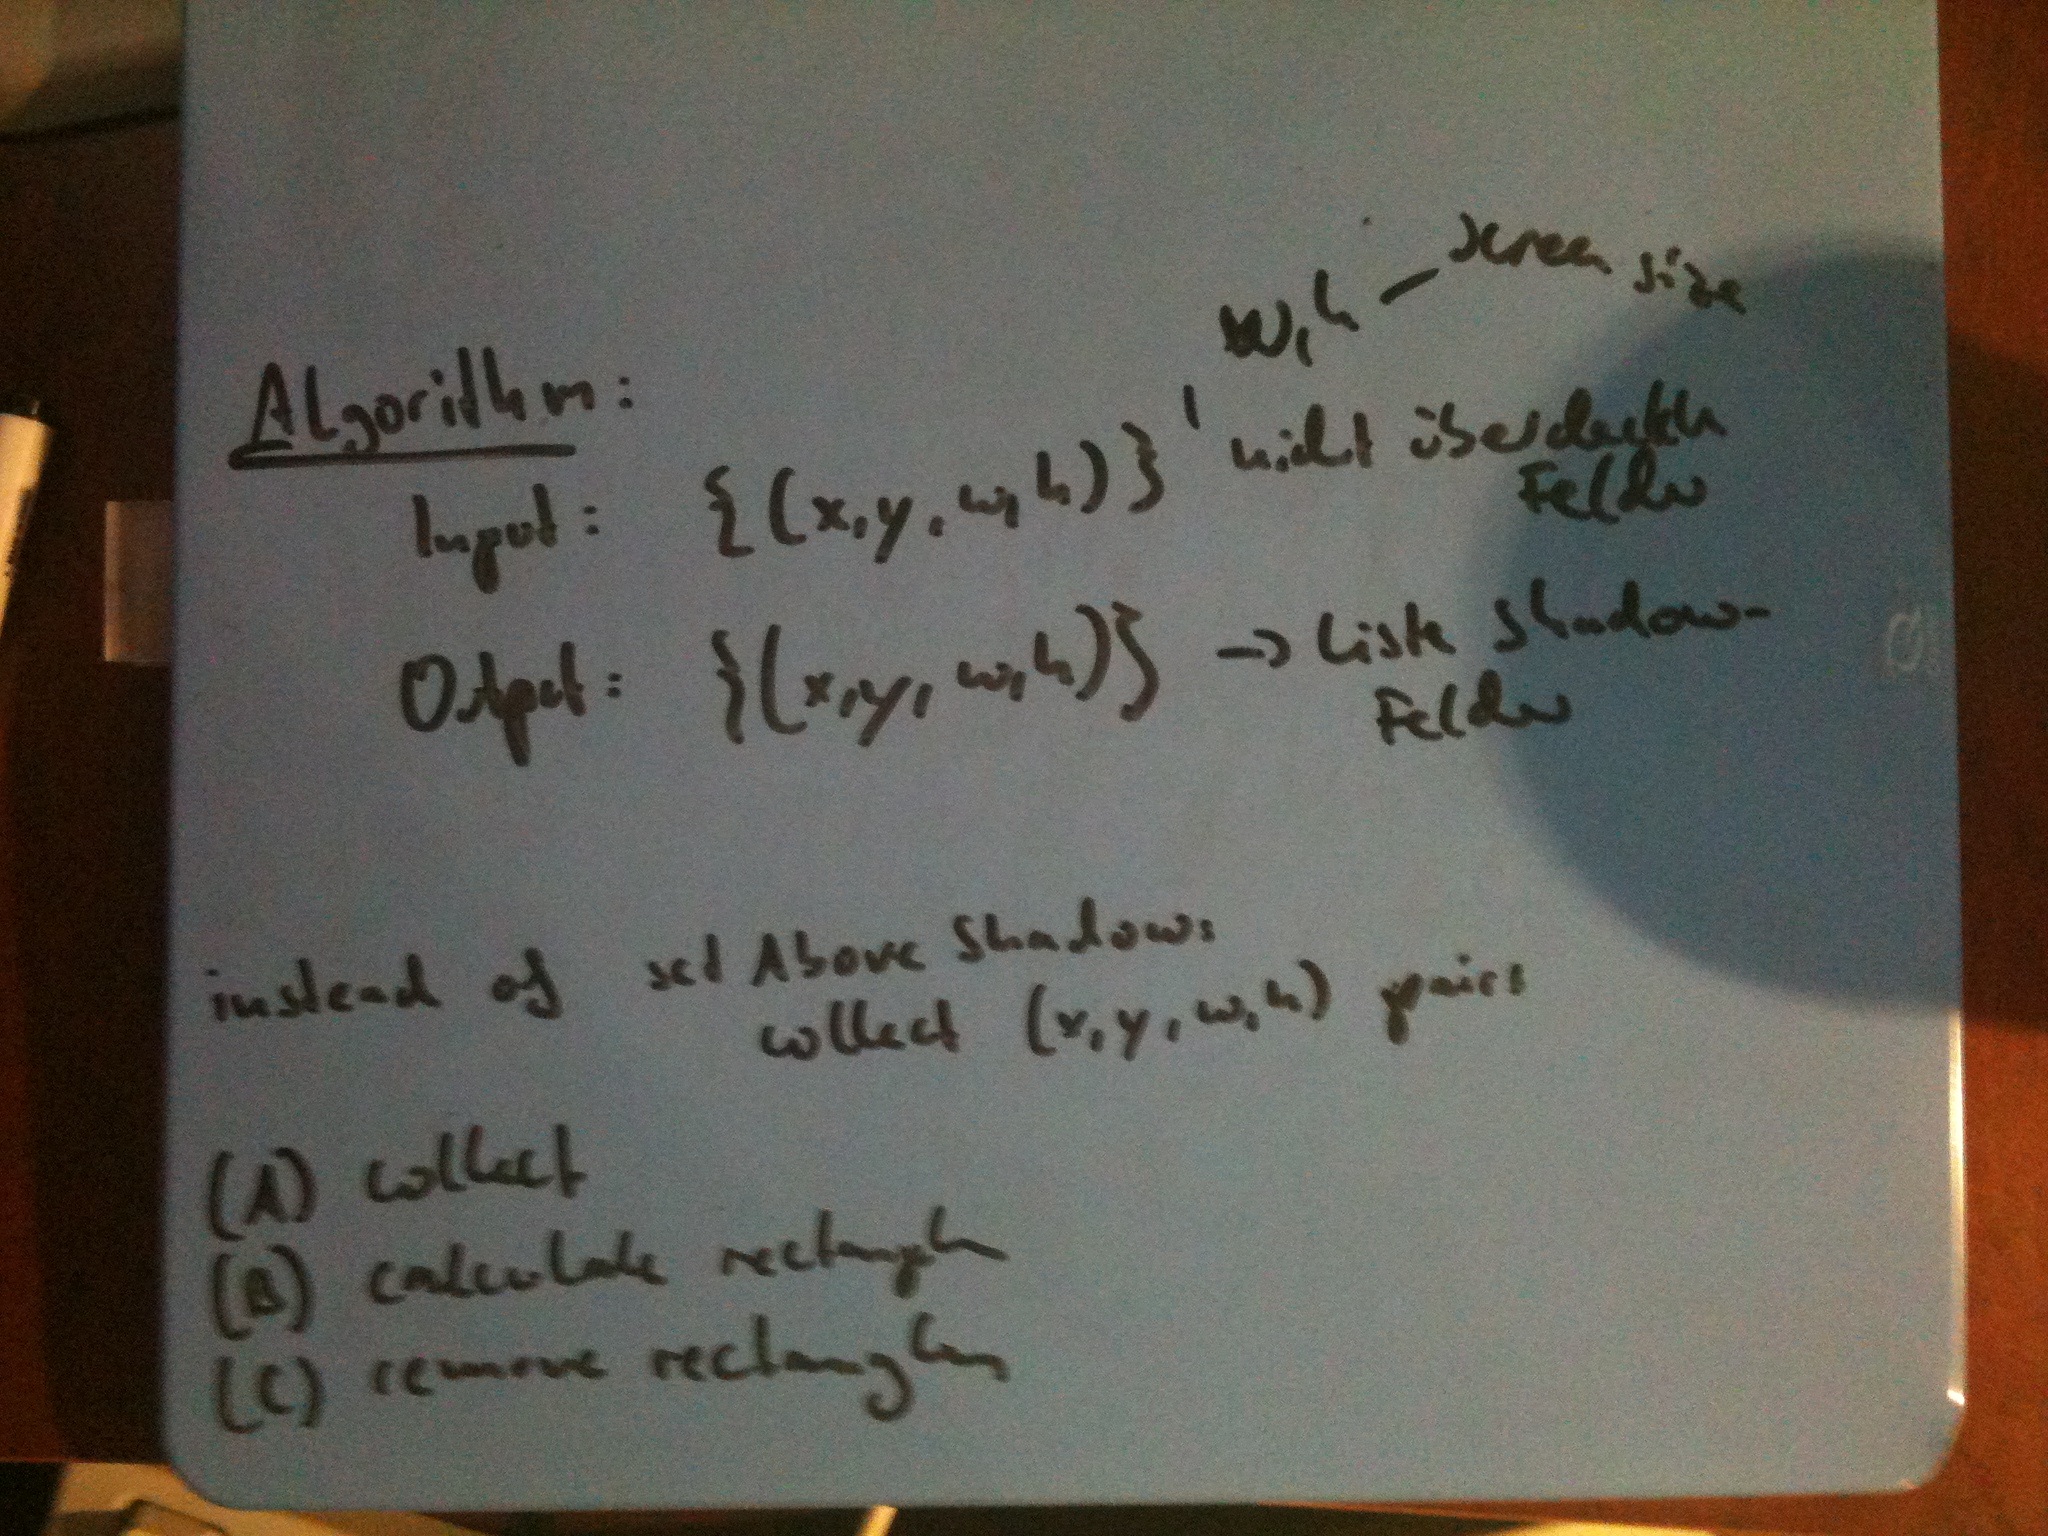 Algorithm:
W, h – screen size
Input: {(x, y, w, h)}, nicht überdeckte
Felder
Output: {(x, y, w, h)} -> Liste Shadow-
Felder
instead of set Above Shadow:
collect (x, y, w, h) pairs
(A) collect
(B) calculate rectangles
(C) remove rectangles